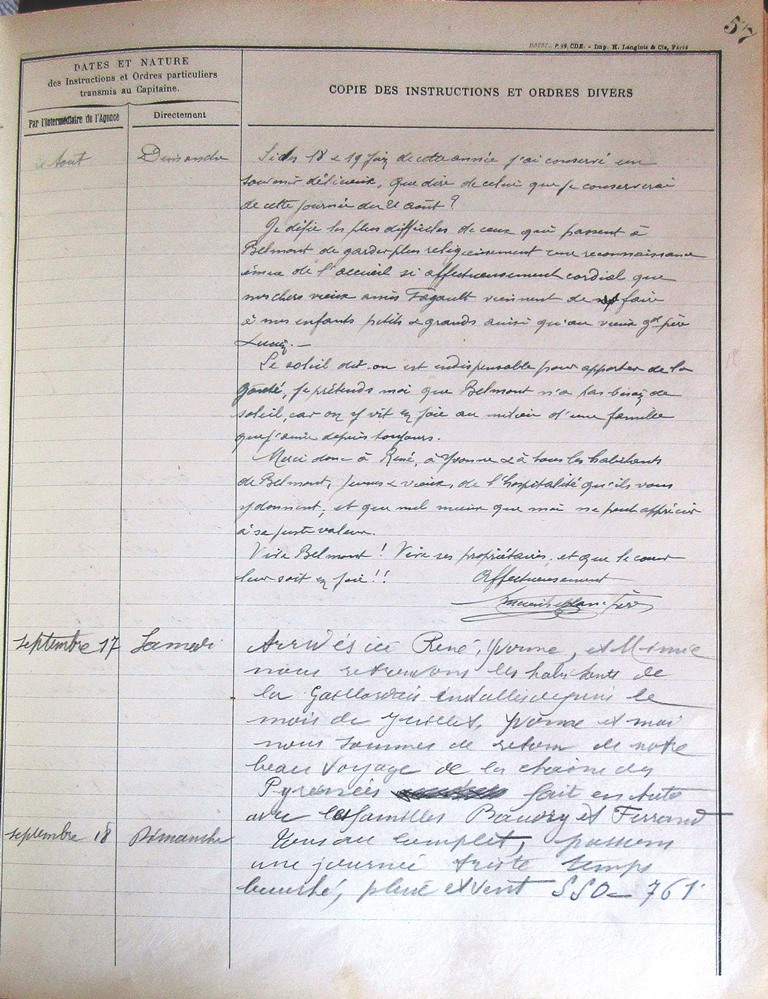 57
P. 99, CDE. - Imp. H. Langlois & Cie, Paris
DATES ET NATURE
des Instructions et Ordres particuliers
transmis au Capitaine.
Par l'Intermédiaire de l'Agence
Directement
COPIE DES INSTRUCTIONS ET ORDRES DIVERS
Août Dimanche Si des 18 & 19 Juin de cette année j'ai conservé un
souvenir délicieux, que dire de celui que je conserverai
de cette journée du 21 août ?
Je défie les plus difficiles de ceux qui passent à
Belmont de garder plus religieusement une reconnaissance
émue de l'accueil si affectueusement cordial que
mes chers vieux amis Fagault viennent de faire
à mes enfants petits & grands ainsi qu'au vieux gd père
Le soleil dit-on est indispensable pour apporter de la
gaieté, je prétends moi que Belmont n'a pas besoin de
soleil, car on y vit en joie au milieu d'une famille
que j'aime depuis toujours.
Merci donc à René, à Yvonne & à tous les habitants
de Belmont, jeunes & vieux, de l'hospitalité qu'ils vous
y donnent, et que nul mieux que moi ne peut apprécier
à sa juste valeur.
Vive Belmont ! Vive ses propriétaires, et que le cœur
leur soit en joie !!
Affectueusement
septembre 17 Samedi Arrivés ici René, Yvonne, et Mimie
nous retrouvons les habitants de
la installés depuis le
mois de Juillet. Yvonne et moi
nous sommes de retour de notre
beau voyage de la chaîne des
Pyrénées fait en auto
avec les familles Baudry et Ferrand
septembre 18 Dimanche Tous au complet, passons
une journée triste temps
bouché, pluie et vent SSO - 761